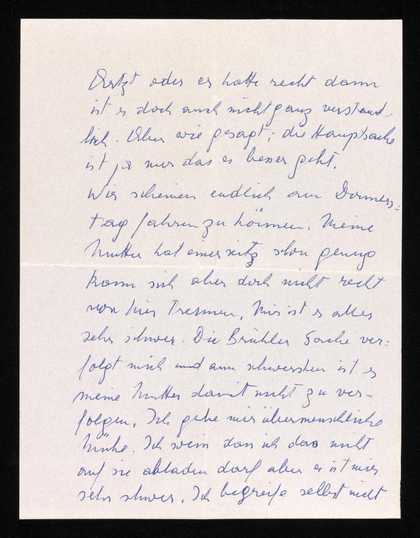 Arzt oder es hatte recht dann
ist es doch auch nicht ganz verständ-
lich. Aber wie gesagt; die Hauptsache
ist ja nur das es besser geht.
Wir scheinen endlich am Donners=
tag fahren zu können. Meine
Mutter hat einerseits schon genug
kann sich aber doch nicht recht
von hier trennen. Mir ist es alles
sehr schwer. Die Brühler Sache ver=
folgt mich und am schwersten ist es
meine Mutter damit nicht zu ver-
folgen. Ich gebe mir übermenschliche
Mühe. Ich weiss dass ich das nicht
auf sie abladen darf aber es ist mir
sehr schwer. Ich begreife selbst nicht